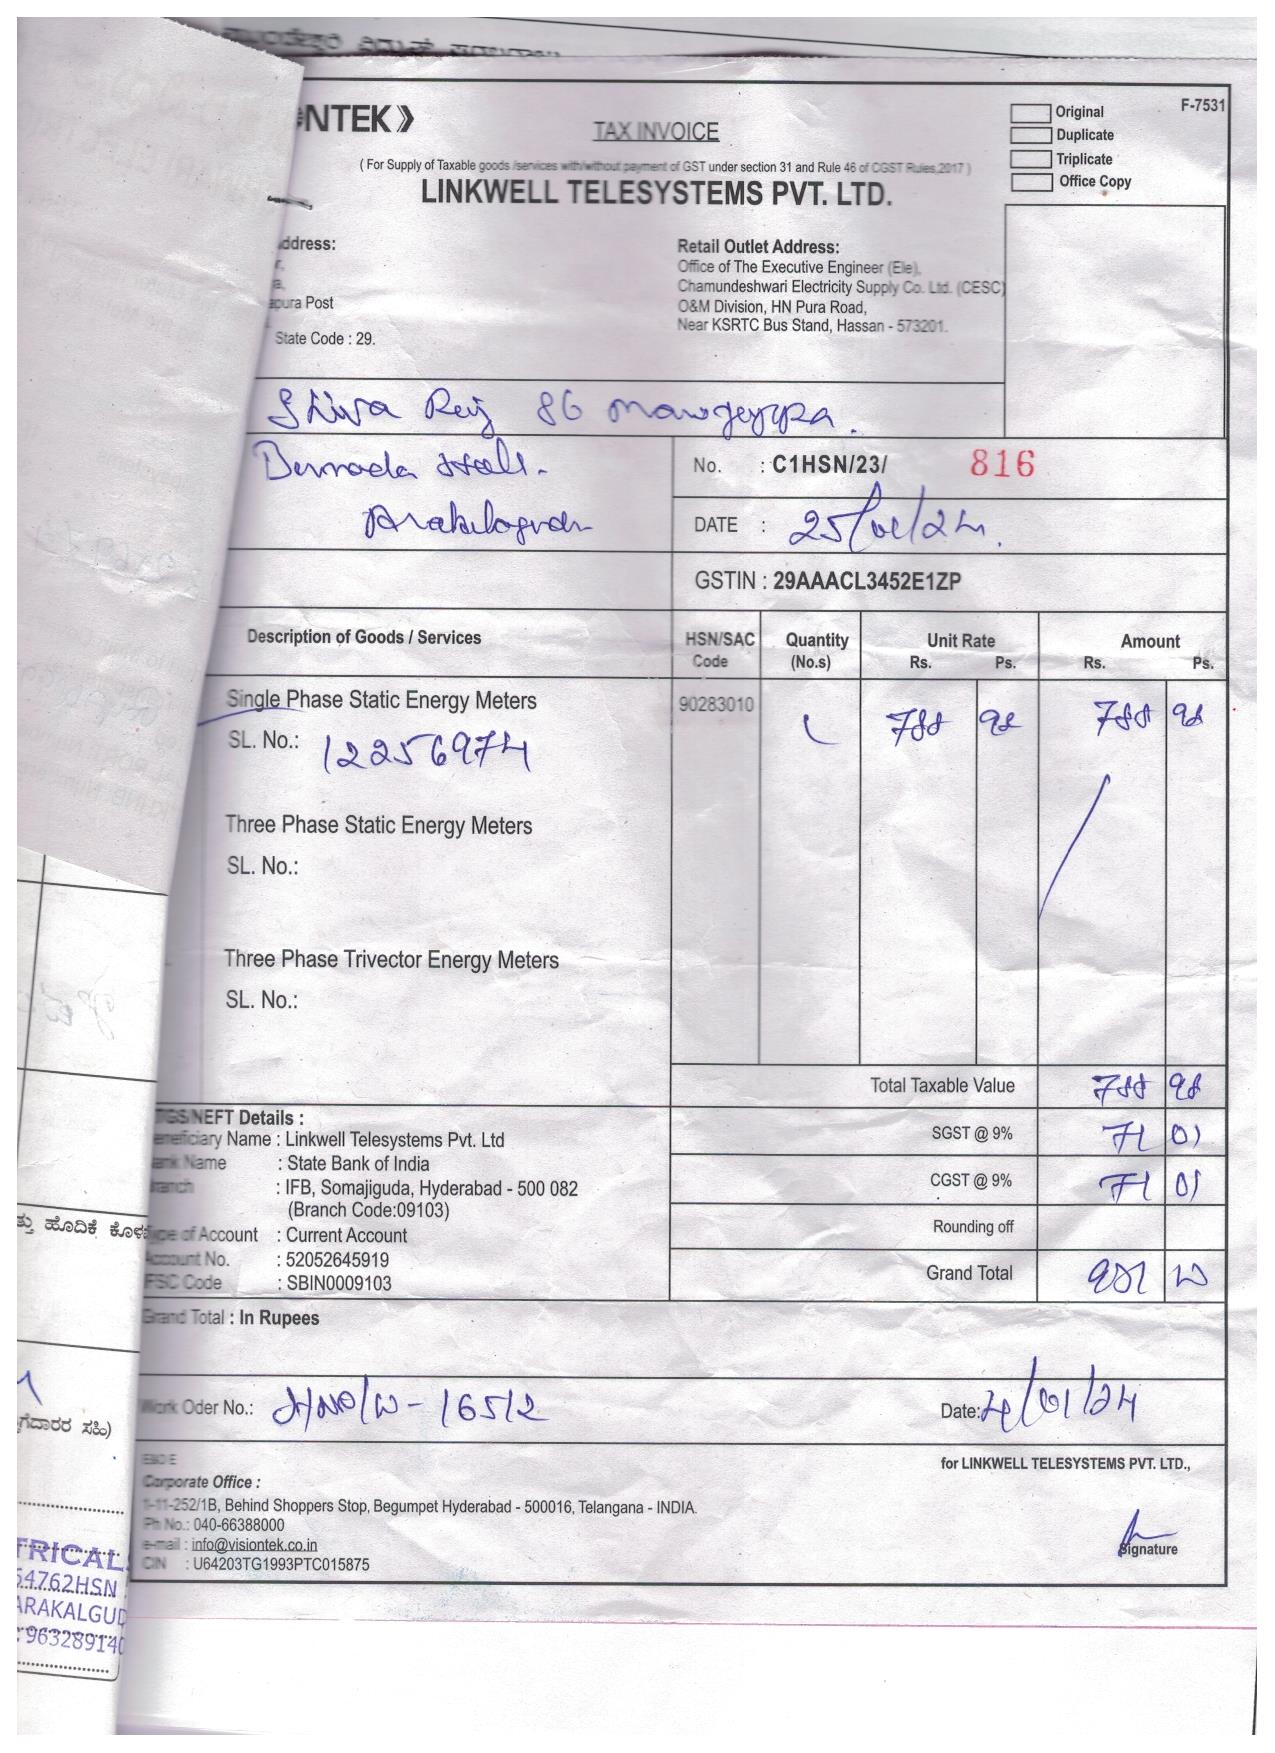 NTEK
F-7531
Original
Duplicate
Triplicate
Office Copy
TAX INVOICE
( For Supply of Taxable goods /services with/without payment of GST under section 31 and Rule 46 of CGST Rules,2017 )
LINKWELL TELESYSTEMS PVT. LTD.
ddress:
Retail Outlet Address:
Office of The Executive Engineer (Ele),
Chamundeshwari Electricity Supply Co. Ltd. (CESC)
O&M Division, HN Pura Road,
Near KSRTC Bus Stand, Hassan - 573201.
pura Post
State Code : 29.
Shiva Raj
No. : C1HSN/23/ 816
DATE : 25/01/24.
GSTIN : 29AAACL3452E1ZP
Description of Goods / Services HSN/SAC Code Quantity (No.s) Unit Rate Rs. Ps. Amount Rs. Ps.
Single Phase Static Energy Meters 90283010 1 788 98 788 98
SL. No.: 12256974
Three Phase Static Energy Meters
SL. No.:
Three Phase Trivector Energy Meters
SL. No.:
Total Taxable Value 788 98
SGST @ 9% 71 01
CGST @ 9% 71 01
Rounding off
Grand Total
TGS/NEFT Details :
eneficiary Name : Linkwell Telesystems Pvt. Ltd
ank Name : State Bank of India
ranch : IFB, Somajiguda, Hyderabad - 500 082
(Branch Code:09103)
ype of Account : Current Account
Account No. : 52052645919
FSC Code : SBIN0009103
Grand Total : In Rupees
Work Oder No.:
Date:
E&O E
Corporate Office :
1-11-252/1B, Behind Shoppers Stop, Begumpet Hyderabad - 500016, Telangana - INDIA.
Ph No.: 040-66388000
e-mail : info@visiontek.co.in
CIN : U64203TG1993PTC015875
for LINKWELL TELESYSTEMS PVT. LTD.,
Signature
ತ್ತು ಹೊದಿಕೆ ಕೊಳ
ಗೆದಾರರ ಸಹಿ)
TRICAL
54762HSN
ARAKALGUD
963289140